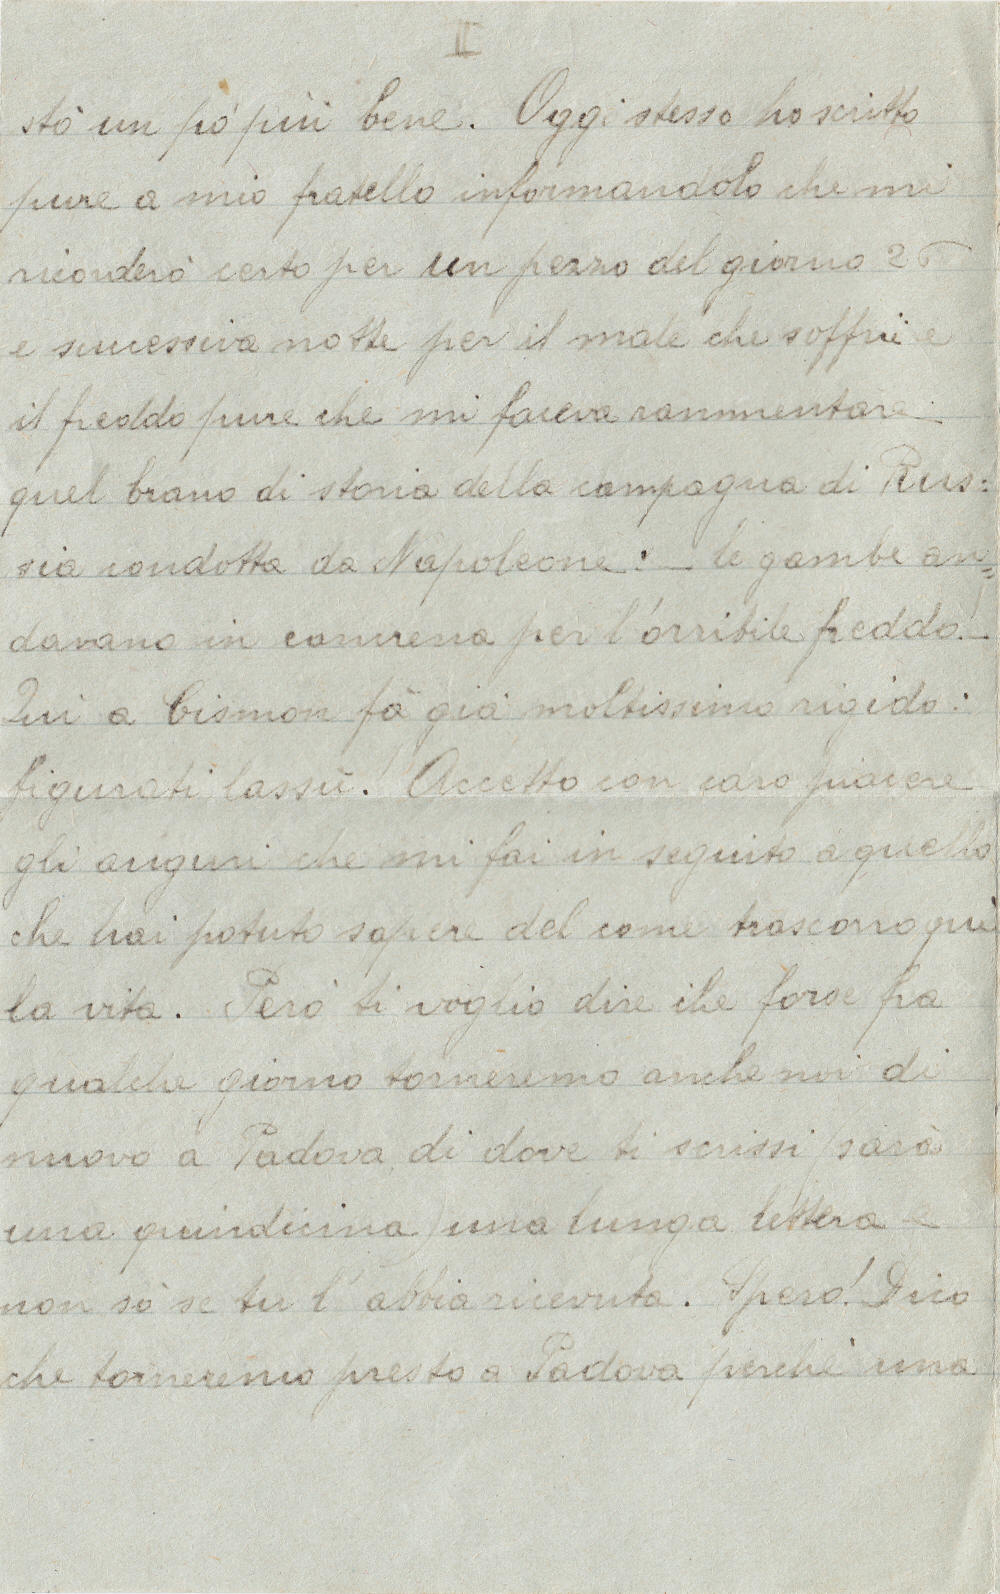 II
stò un pò più bene. Oggi stesso ho scritto
pure a mio fratello informandolo che mi
ricorderò certo per un pezzo del giorno 26
e successiva notte per il male che soffrii e
il freddo pure che mi faceva rammentare
quel brano di storia della campagna di Rus:
sia condotta da Napoleone: — le gambe an=
davano in cancrena per l'orribile freddo! —
Qui a Cismon fà già moltissimo rigido:
figurati lassù! Accetto con caro piacere
gli auguri che mi fai in seguito a quello
che hai potuto sapere del come trascorro quì
la vita. Però ti voglio dire che forse fra
qualche giorno torneremo anche noi di
nuovo a Padova di dove ti scrissi (sarà
una quindicina) una lunga lettera e
non sò se tu l'abbia ricevuta. Spero! Dico
che torneremo presto a Padova perchè una